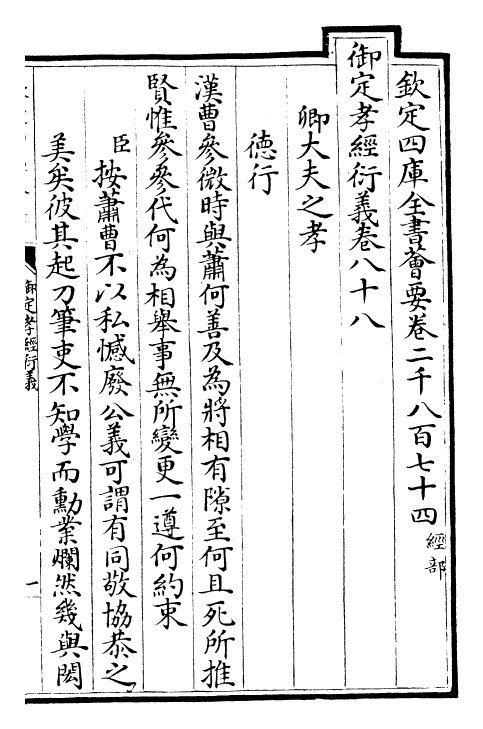 欽定四庫全書薈要卷二千八百七十四 經部
御定孝經衍義卷八十八
卿大夫之孝
德行
漢曹參微時與蕭何善及為將相有隙至何且死所推
賢惟參參代何為相舉事無所變更一遵何約束
臣按蕭曹不以私憾廢公義可謂有同敬協恭之
美矣彼其起刀筆吏不知學而勳業爛然幾與閎
御定孝經衍義
一